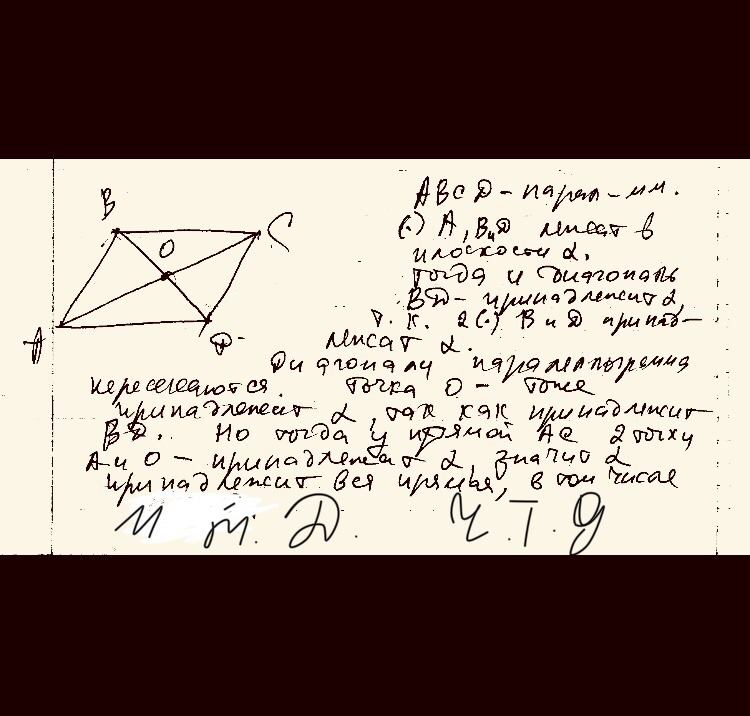 B
C
O
A
D
ABCD - парал-мм.
(.) A, B и D лежат в
плоскости α.
тогда и диагональ
BD - принадлежит α,
т. к. 2 (.) B и D принад-
лежат α.
Диагонали параллелограмма
пересекаются. Точка O - тоже
принадлежит α, так как принадлежит
BD. Но тогда у прямой AC 2 точки
A и O - принадлежат α, значит α
принадлежит вся прямая, в том числе
и т. D. Ч.Т.Д